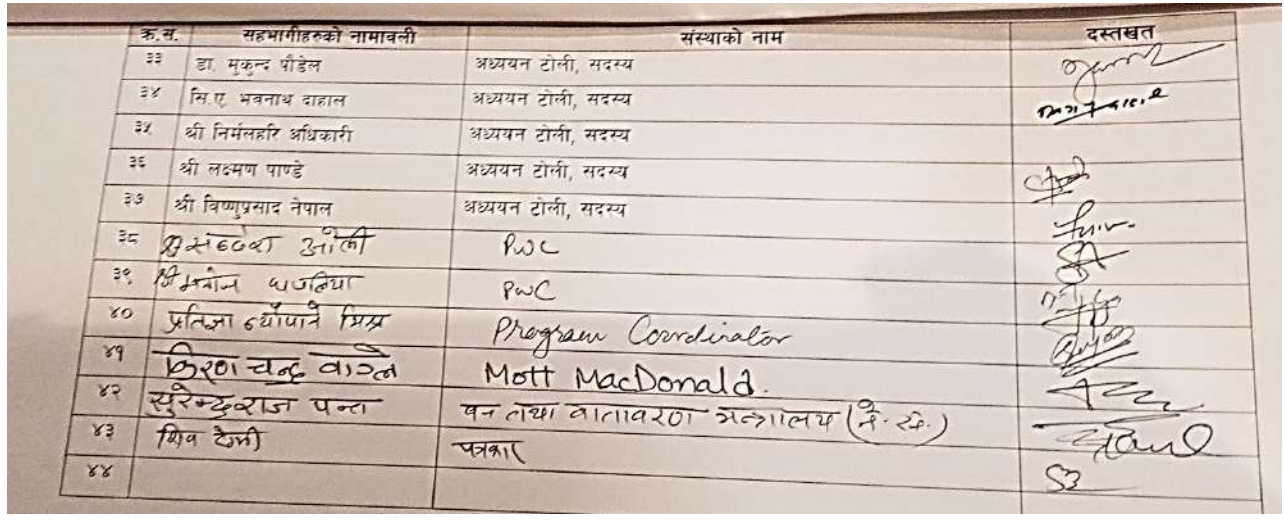 क्र.स. सहभागीहरुको नामावली संस्थाको नाम दस्तखत
३३ डा. मुकुन्द पौडेल अध्ययन टोली, सदस्य
३४ सि.ए. भवनाथ दाहाल अध्ययन टोली, सदस्य
३५ श्री निर्मलहरि अधिकारी अध्ययन टोली, सदस्य
३६ श्री लक्ष्मण पाण्डे अध्ययन टोली, सदस्य
३७ श्री विष्णुप्रसाद नेपाल अध्ययन टोली, सदस्य
३८ ओली PWC
३९ PwC
४० प्रतिज्ञा न्यौपाने मिश्र Program Coordinator
४१ किरण चन्द्र वाग्ले Mott MacDonald.
४२ सुरेन्द्रराज पन्त वन तथा वातावरण मन्त्रालय
४३ शिव पत्रकार
४४